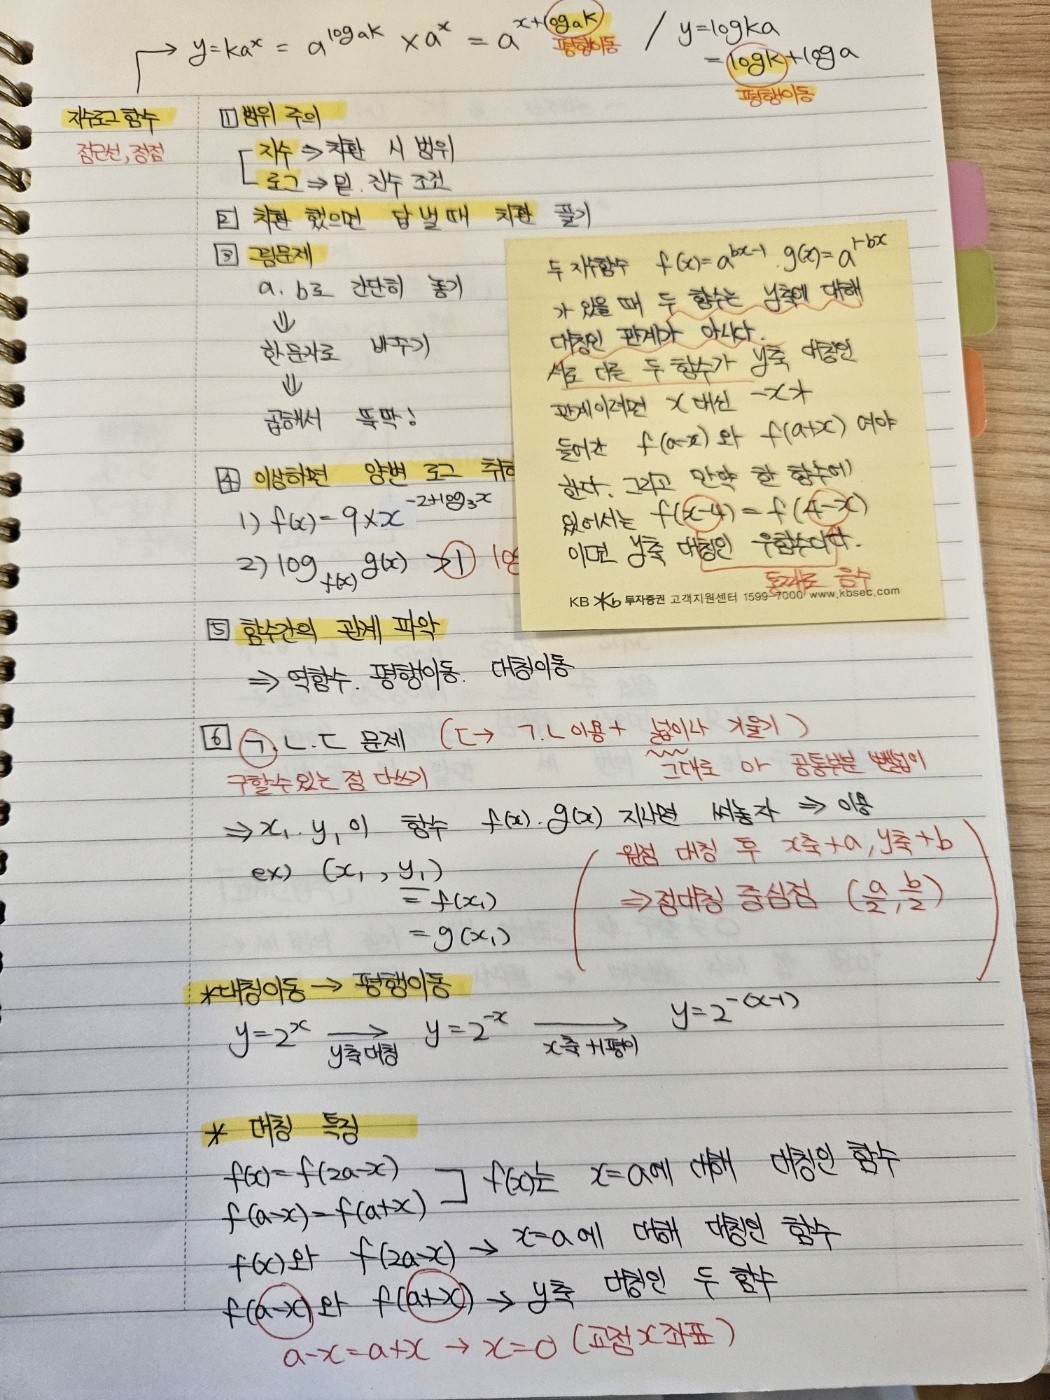 y=ka^x = a^{log_a k} × a^x = a^{x+log_a k} / y=logka
평행이동
=logk+loga
평행이동
지수로그함수
점근선, 정점
1 범위 주의
지수 → 치환 시 범위
로그 ⇒ 밑. 진수 조건
2 치환 했으면 답 낼 때 치환 풀기
3 그림문제
a. b로 간단히 놓기
⇓
한문자로 바꾸기
⇓
곱해서 뚝딱!
4 이상하면 양변 로그 취하
1) f(x)=9×x^{-2+log_3 x}
2) log_{f(x)} g(x) > 1
5 함수간의 관계 파악
⇒ 역함수. 평행이동. 대칭이동
두 지수함수 f(x)=a^{bx-1}. g(x)=a^{1-bx}
가 있을 때 두 함수는 y축에 대해
대칭인 관계가 아니다.
서로 다른 두 함수가 y축 대칭인
관계이려면 x 대신 -x가
들어간 f(a-x) 와 f(a+x) 여야
한다. 그리고 만약 한 함수에
있어서는 f(x-4) = f(4-x)
이면 y축 대칭인 우함수다.
통째로 음수
KB 투자증권 고객지원센터 1599-7000 www.kbsec.com
6 ㄱ.ㄴ.ㄷ 문제 (ㄷ→ ㄱ.ㄴ이용+ 넓이나 기울기)
구할수있는 점 다쓰기
그대로 or 공통부분 뺀넓이
⇒ x₁. y₁이 함수 f(x). g(x) 지나면 써놓자 ⇒ 이용
ex) (x₁, y₁)
= f(x₁)
= g(x₁)
(원점 대칭 후 x축+a, y축+b
⇒점대칭 중심점 (a/2, b/2))
*대칭이동 → 평행이동
y=2^x → y=2^{-x} → y=2^{-(x-1)}
y축대칭 x축+1평이
* 대칭 특징
f(x)=f(2a-x)
f(a-x)=f(a+x) ] f(x)는 x=a에 대해 대칭인 함수
f(x)와 f(2a-x) → x=a에 대해 대칭인 함수
f(a-x)와 f(a+x) → y축 대칭인 두 함수
a-x=a+x → x=0 (교점 x좌표)